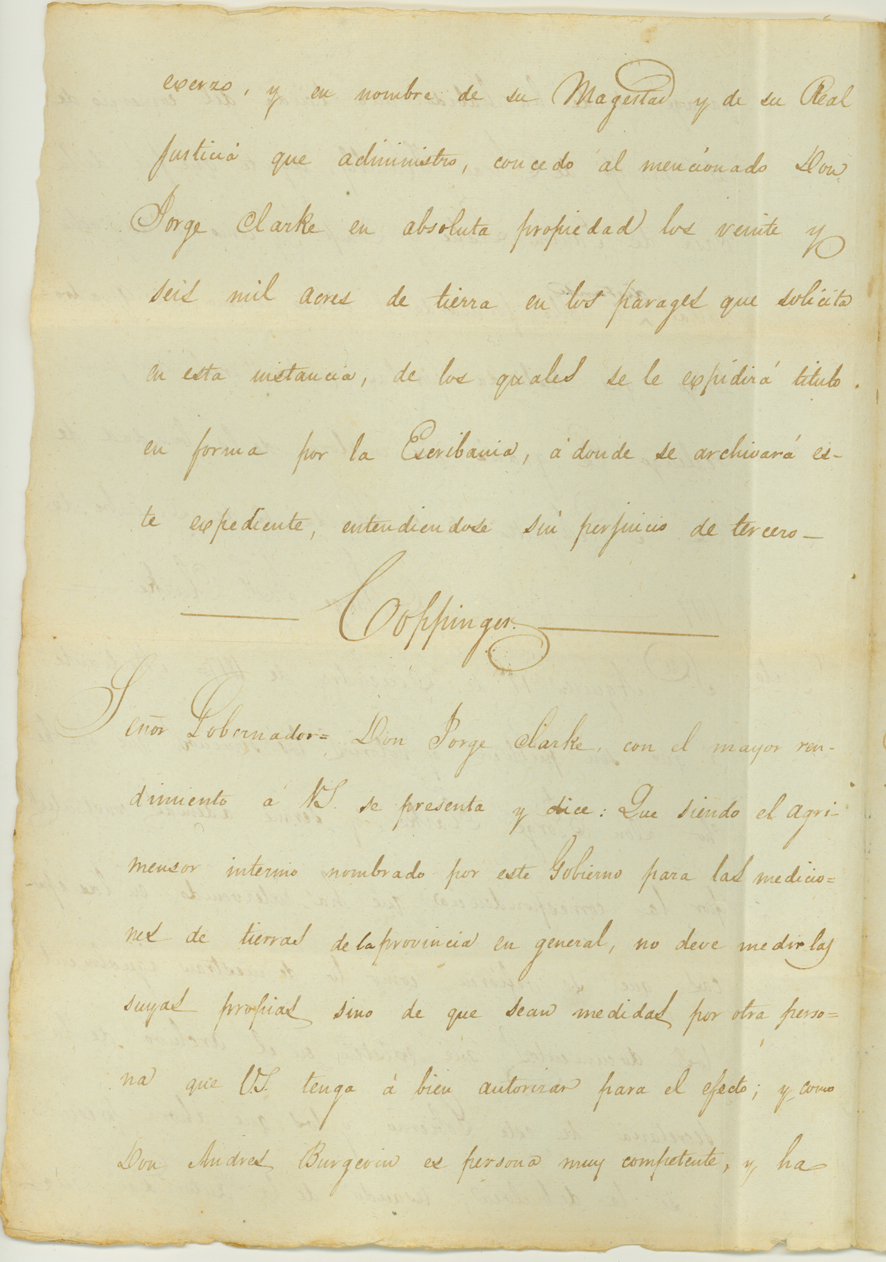 exerzo, y en nombre de su Magestad y de su Real
Justicia que administro, concedo al mencionado Don
Jorge Clarke en absoluta propiedad los veinte y
seis mil acres de tierra en los parages que solicita
en esta instancia, de los quales se le expidirá titulo
en forma por la Escribania, á donde se archivará es-
te expediente, entendiendose sin perjuicio de tercero—
Coppinger.
Señor Gobernador= Don Jorge Clarke, con el mayor ren-
dimiento á V.S. se presenta y dice: Que siendo el agri-
mensor interino nombrado por este Gobierno para las medicio=
nes de tierras de la provincia en general, no deve medir las
suyas propias sino de que sean medidas por otra perso=
na que V.S. tenga á bien autorizar para el efecto; y como
Don Andres Burgevin es persona muy competente, y ha